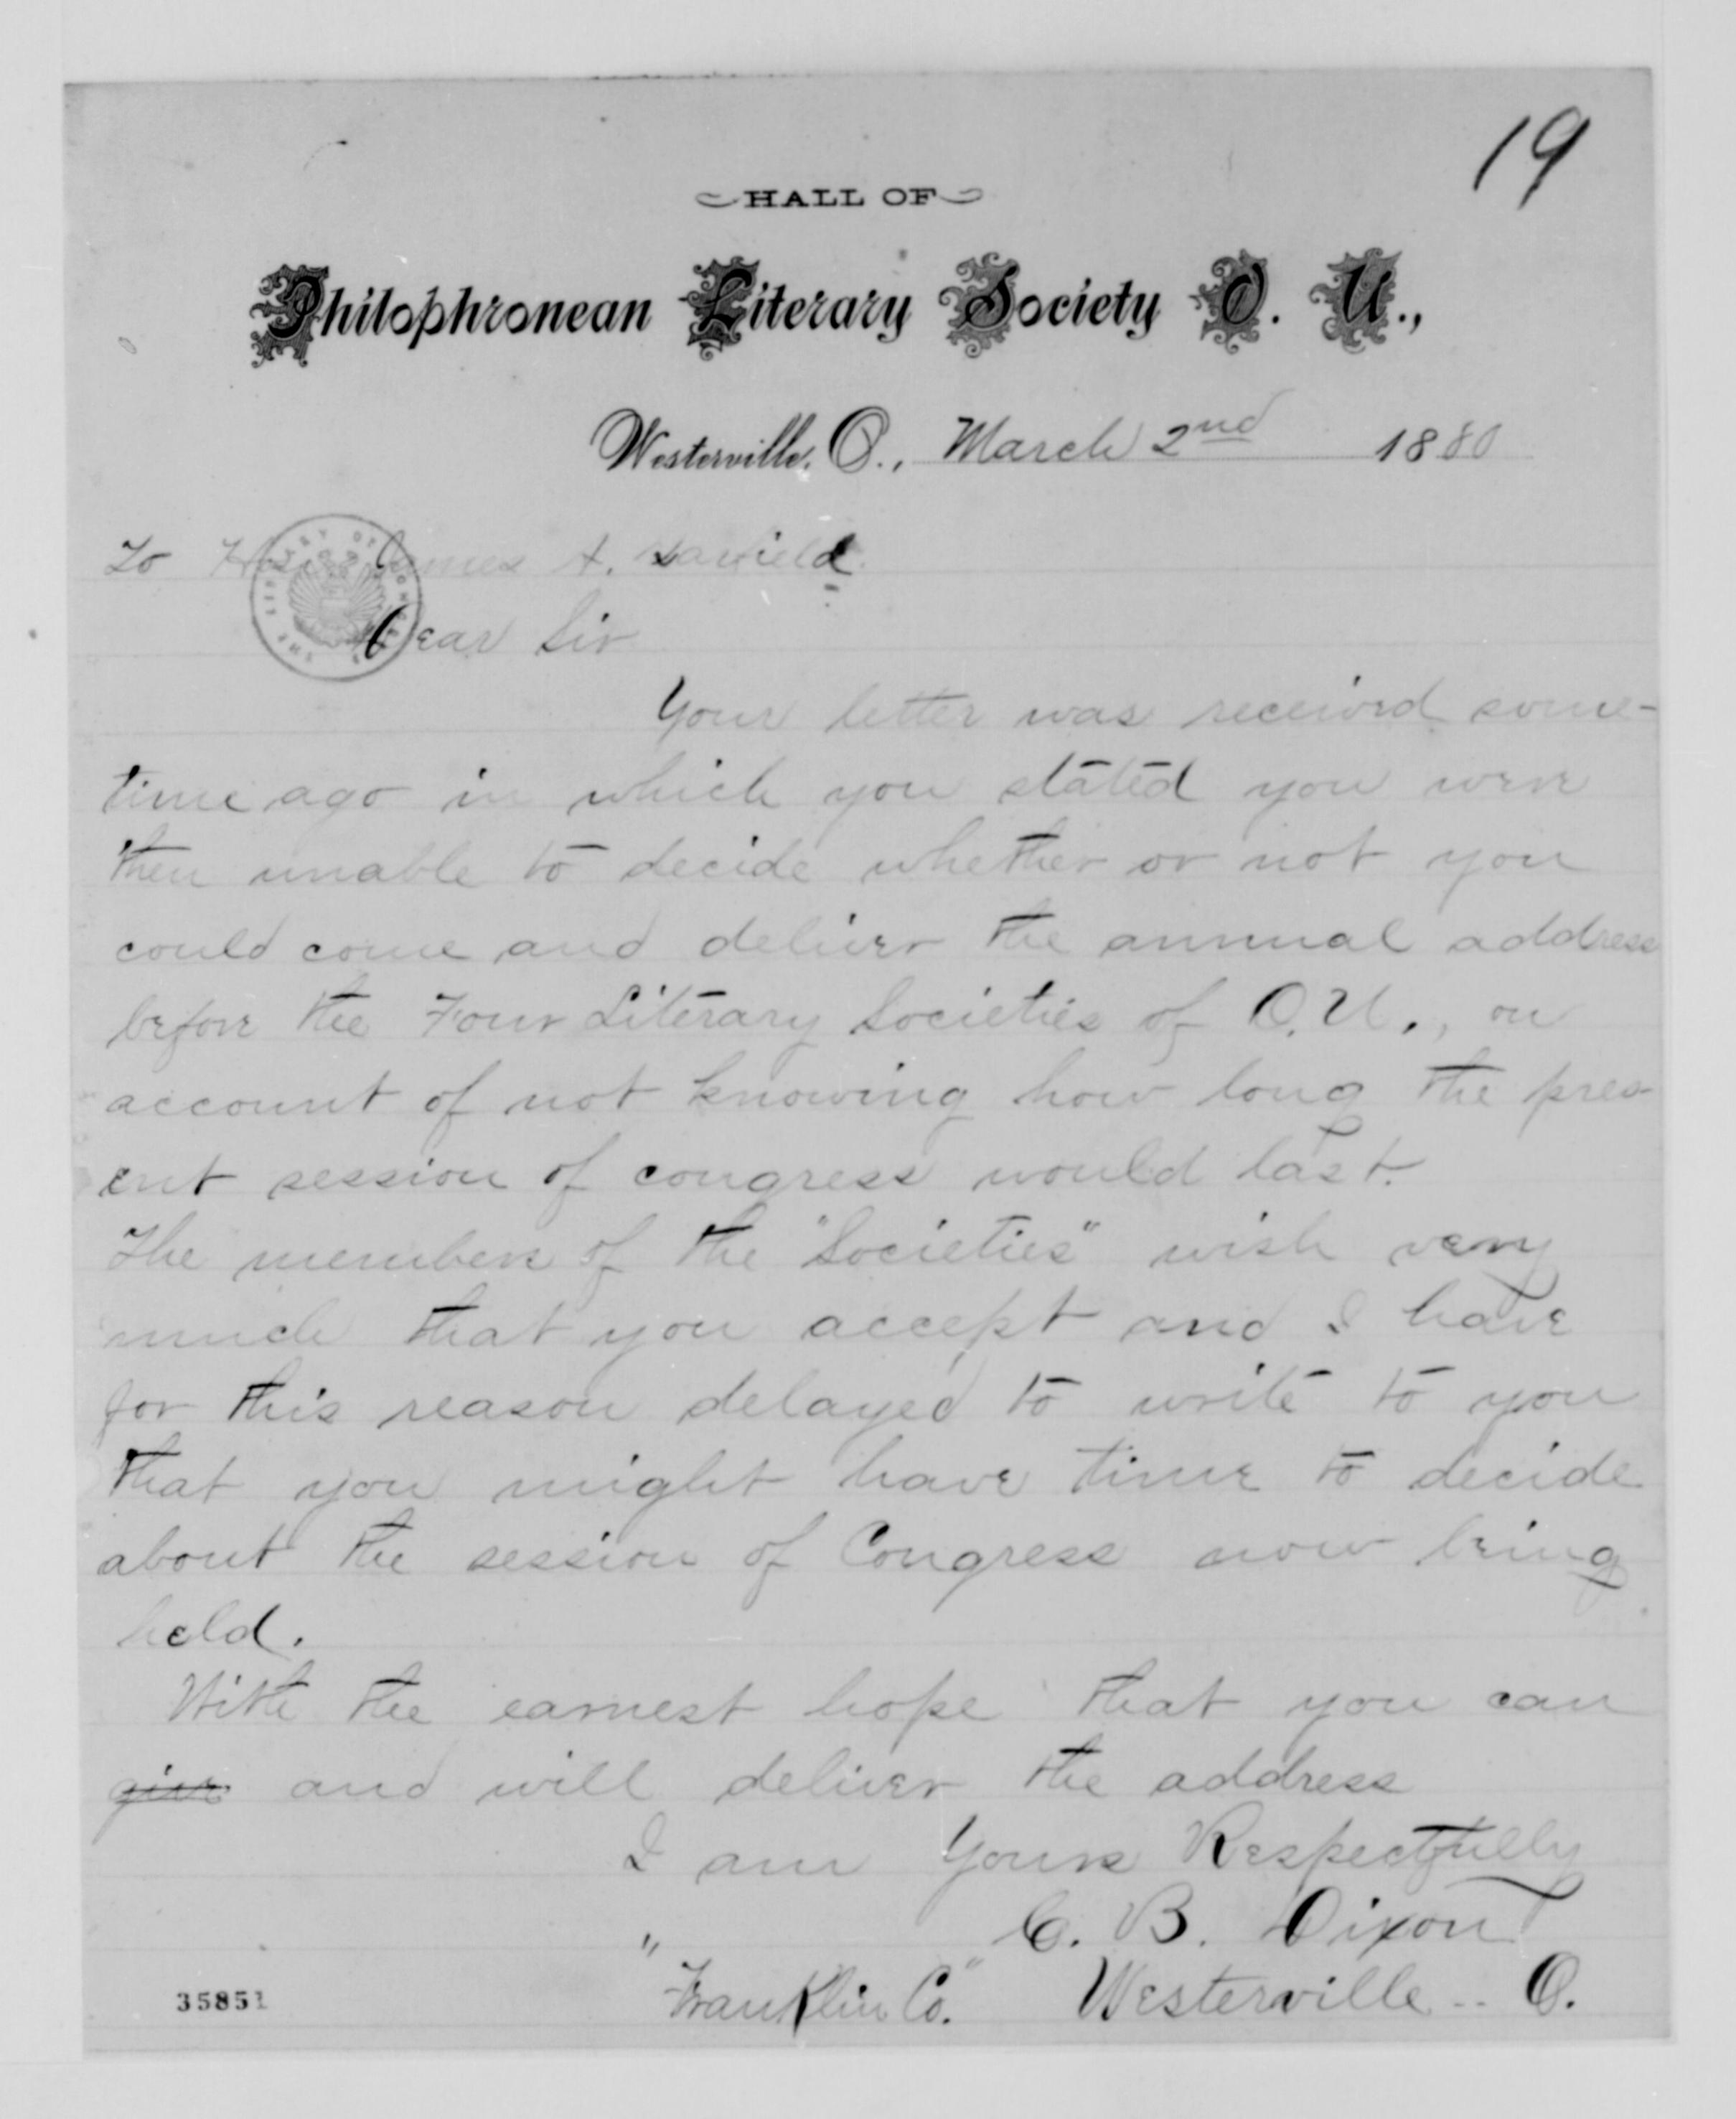 19
HALL OF
Philophronean Literary Society O. U.,
Westerville, O., March 2nd 1880
To Hon. James A. Garfield
Dear Sir
Your letter was received some-
time ago in which you stated you were
then unable to decide whether or not you
could come and deliver the annual address
before the Four Literary Societies of O.U., on
account of not knowing how long the pres-
ent session of congress would last.
The members of the "Societies" wish very
much that you accept and I have
for this reason delayed to write to you
that you might have time to decide
about the session of Congress now being
held.
With the earnest hope that you can
give and will deliver the address
I am Yours Respectfully
C. B. Dixon
"Franklin Co." Westerville -- O.
35851